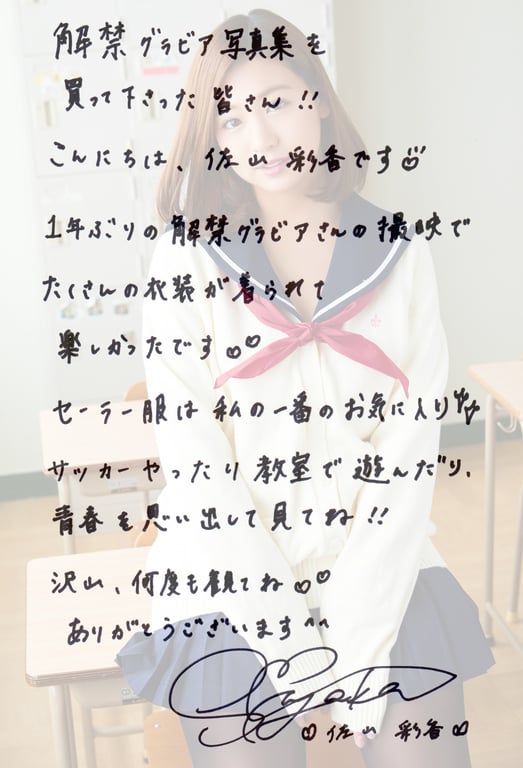 解禁グラビア写真集を
買って下さった皆さん!!
こんにちは、佐山彩香です
1年ぶりの解禁グラビアさんの撮映で
たくさんの衣装が着られて
楽しかったです
セーラー服は私の一番のお気に入り
サッカーやったり教室で遊んだり、
青春を思い出して見てね!!
沢山、何度も観てね
ありがとうございます^^
Sayaka
佐山彩香